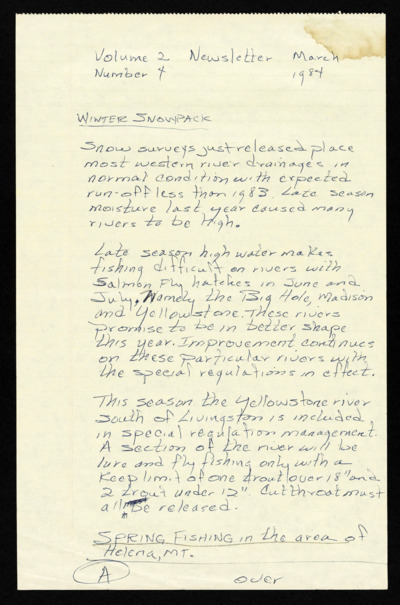 Volume 2 Newsletter March
Number 4 1984
WINTER SNOWPACK
Snow surveys just released place
most western river drainages in
normal condition with expected
run-off less than 1983. Late season
moisture last year caused many
rivers to be high.
Late season high water makes
fishing difficult on rivers with
Salmon Fly hatches in June and
July, Namely the Big Hole, Madison
and Yellowstone. These rivers
promise to be in better shape
this year. Improvement continues
on these particular rivers with
the special regulations in effect.
This season the Yellowstone river
South of Livingston is included
in special regulation management.
A section of the river will be
lure and fly fishing only with a
Keep limit of one trout over 18" and
2 trout under 12". Cutthroat must
all be released.
SPRING FISHING in the area of
Helena, MT.
A over